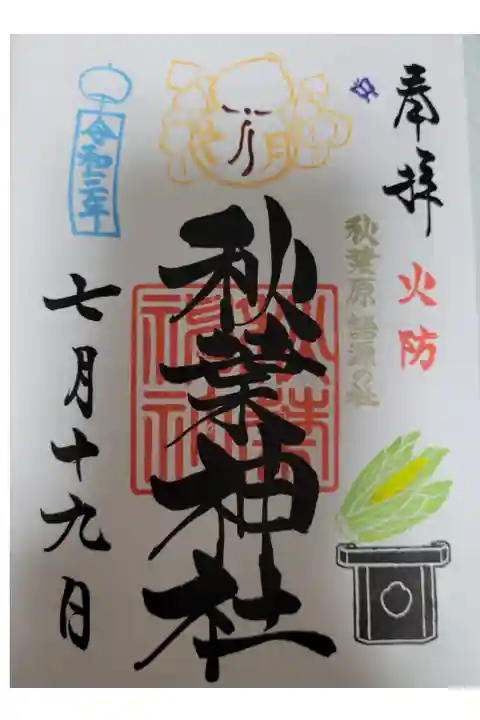 奉拝
火防
秋葉原 語源の社
秋葉神社
秋葉
神社
令和三年
七月十九日